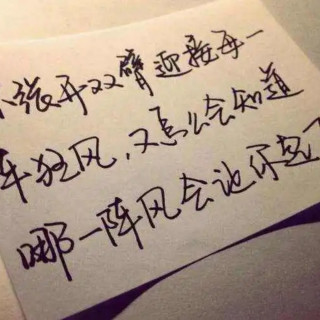 不张开双臂迎接每一
阵狂风，又怎么会知道
哪一阵风会让你起